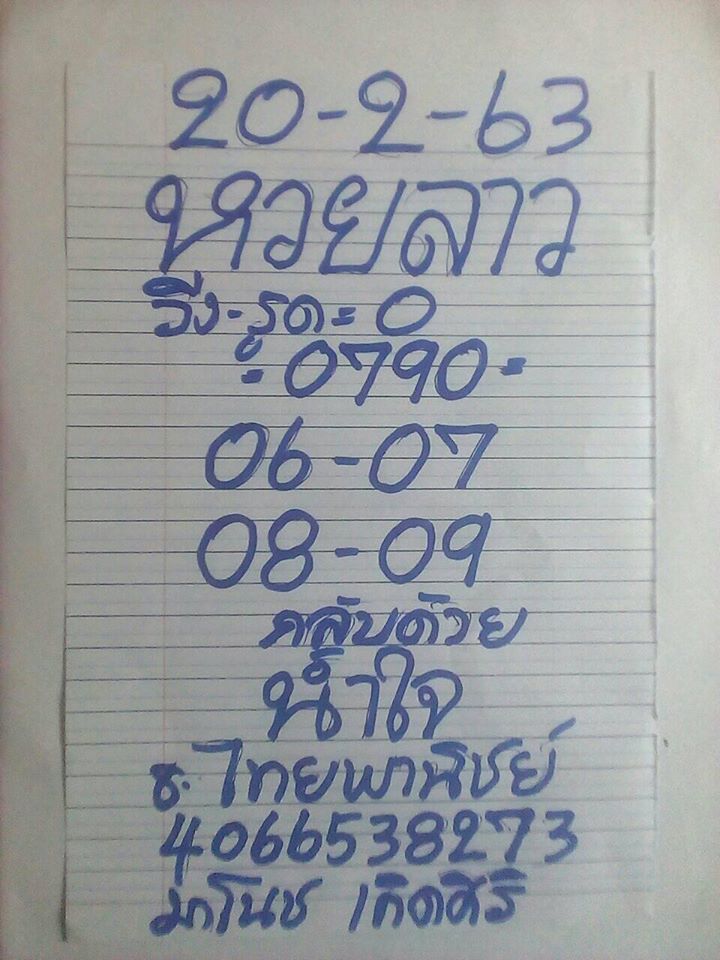 20-2-63
หวยลาว
วิ่ง-รูด=0
=0790=
06-07
08-09
กลับด้วย
น้ำใจ
ธ.ไทยพานิชย์
4066538273
มาโนช เกิดศิริ